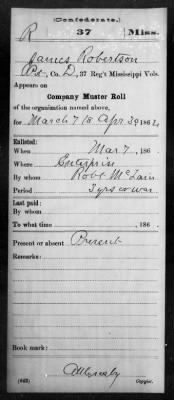 (Confederate.)
R 37 Miss.
James Robertson
Pvt, Co. D, 37 Reg't Mississippi Vols.
Appears on
Company Muster Roll
of the organization named above,
for March 7 to Apr 30, 1862.
Enlisted:
When Mar 7, 186 .
Where Enterprise
By whom Robt McLain
Period 3 yrs or war
Last paid:
By whom
To what time , 186 .
Present or absent Present
Remarks:
Book mark:
(642) Copyist.